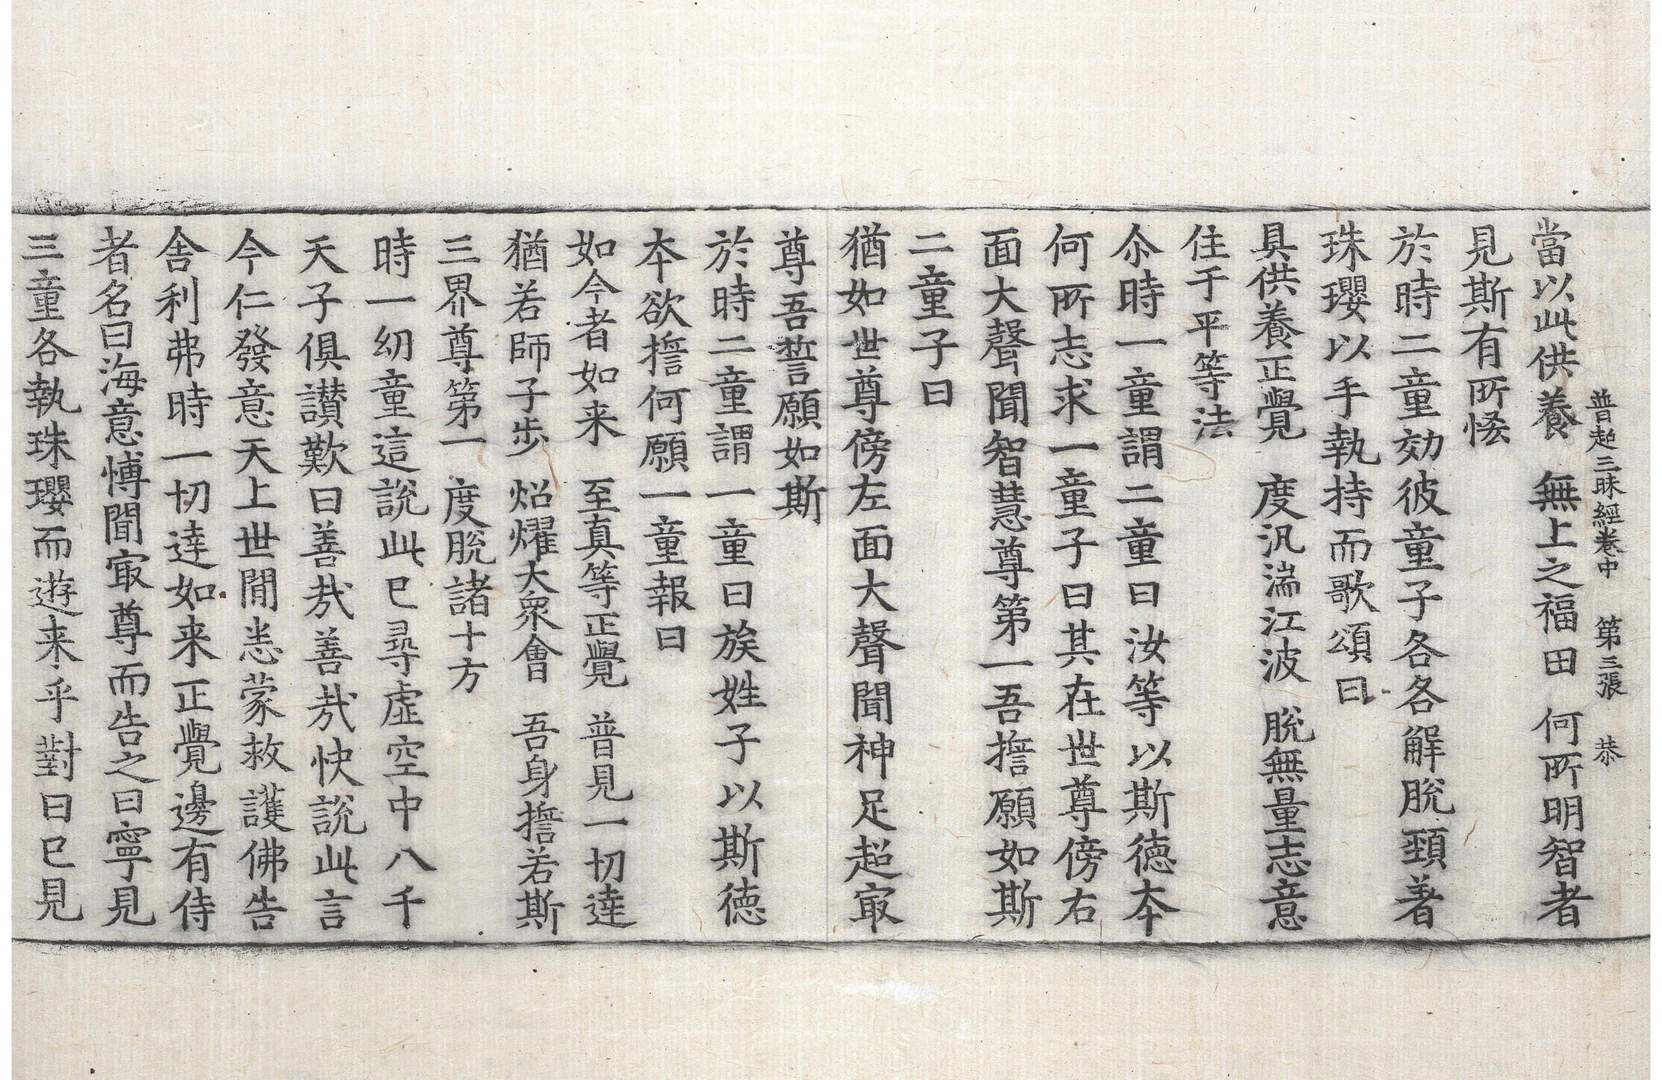 普超三昧經卷中　第三張　恭
當以此供養　無上之福田　何所明智者
見斯有所悋
於時二童効彼童子各各解脫頸著
珠瓔以手執持而歌頌曰
具供養正覺　度汎湍江波　脫無量志意
住于平等法
尒時一童謂二童曰汝等以斯德本
何所志求一童子曰其在世尊傍右
面大聲聞智慧尊第一吾擔願如斯
二童子曰
猶如世尊傍左面大聲聞神足超㝡
尊吾誓願如斯
於時二童謂一童曰族姓子以斯德
本欲擔何願一童報曰
如今者如来　至真等正覺　普見一切達
猶若師子步　炤燿大衆會　吾身擔若斯
三界尊第一　度脫諸十方
時一幼童這說此已尋虛空中八千
天子俱讃歎曰善㦲善㦲快說此言
今仁發意天上世閒悉蒙救護佛告
舎利弗時一切達如来正覺邊有侍
者名曰海意愽聞㝡尊而告之曰寧見
三童各執珠瓔而遊来乎對曰已見